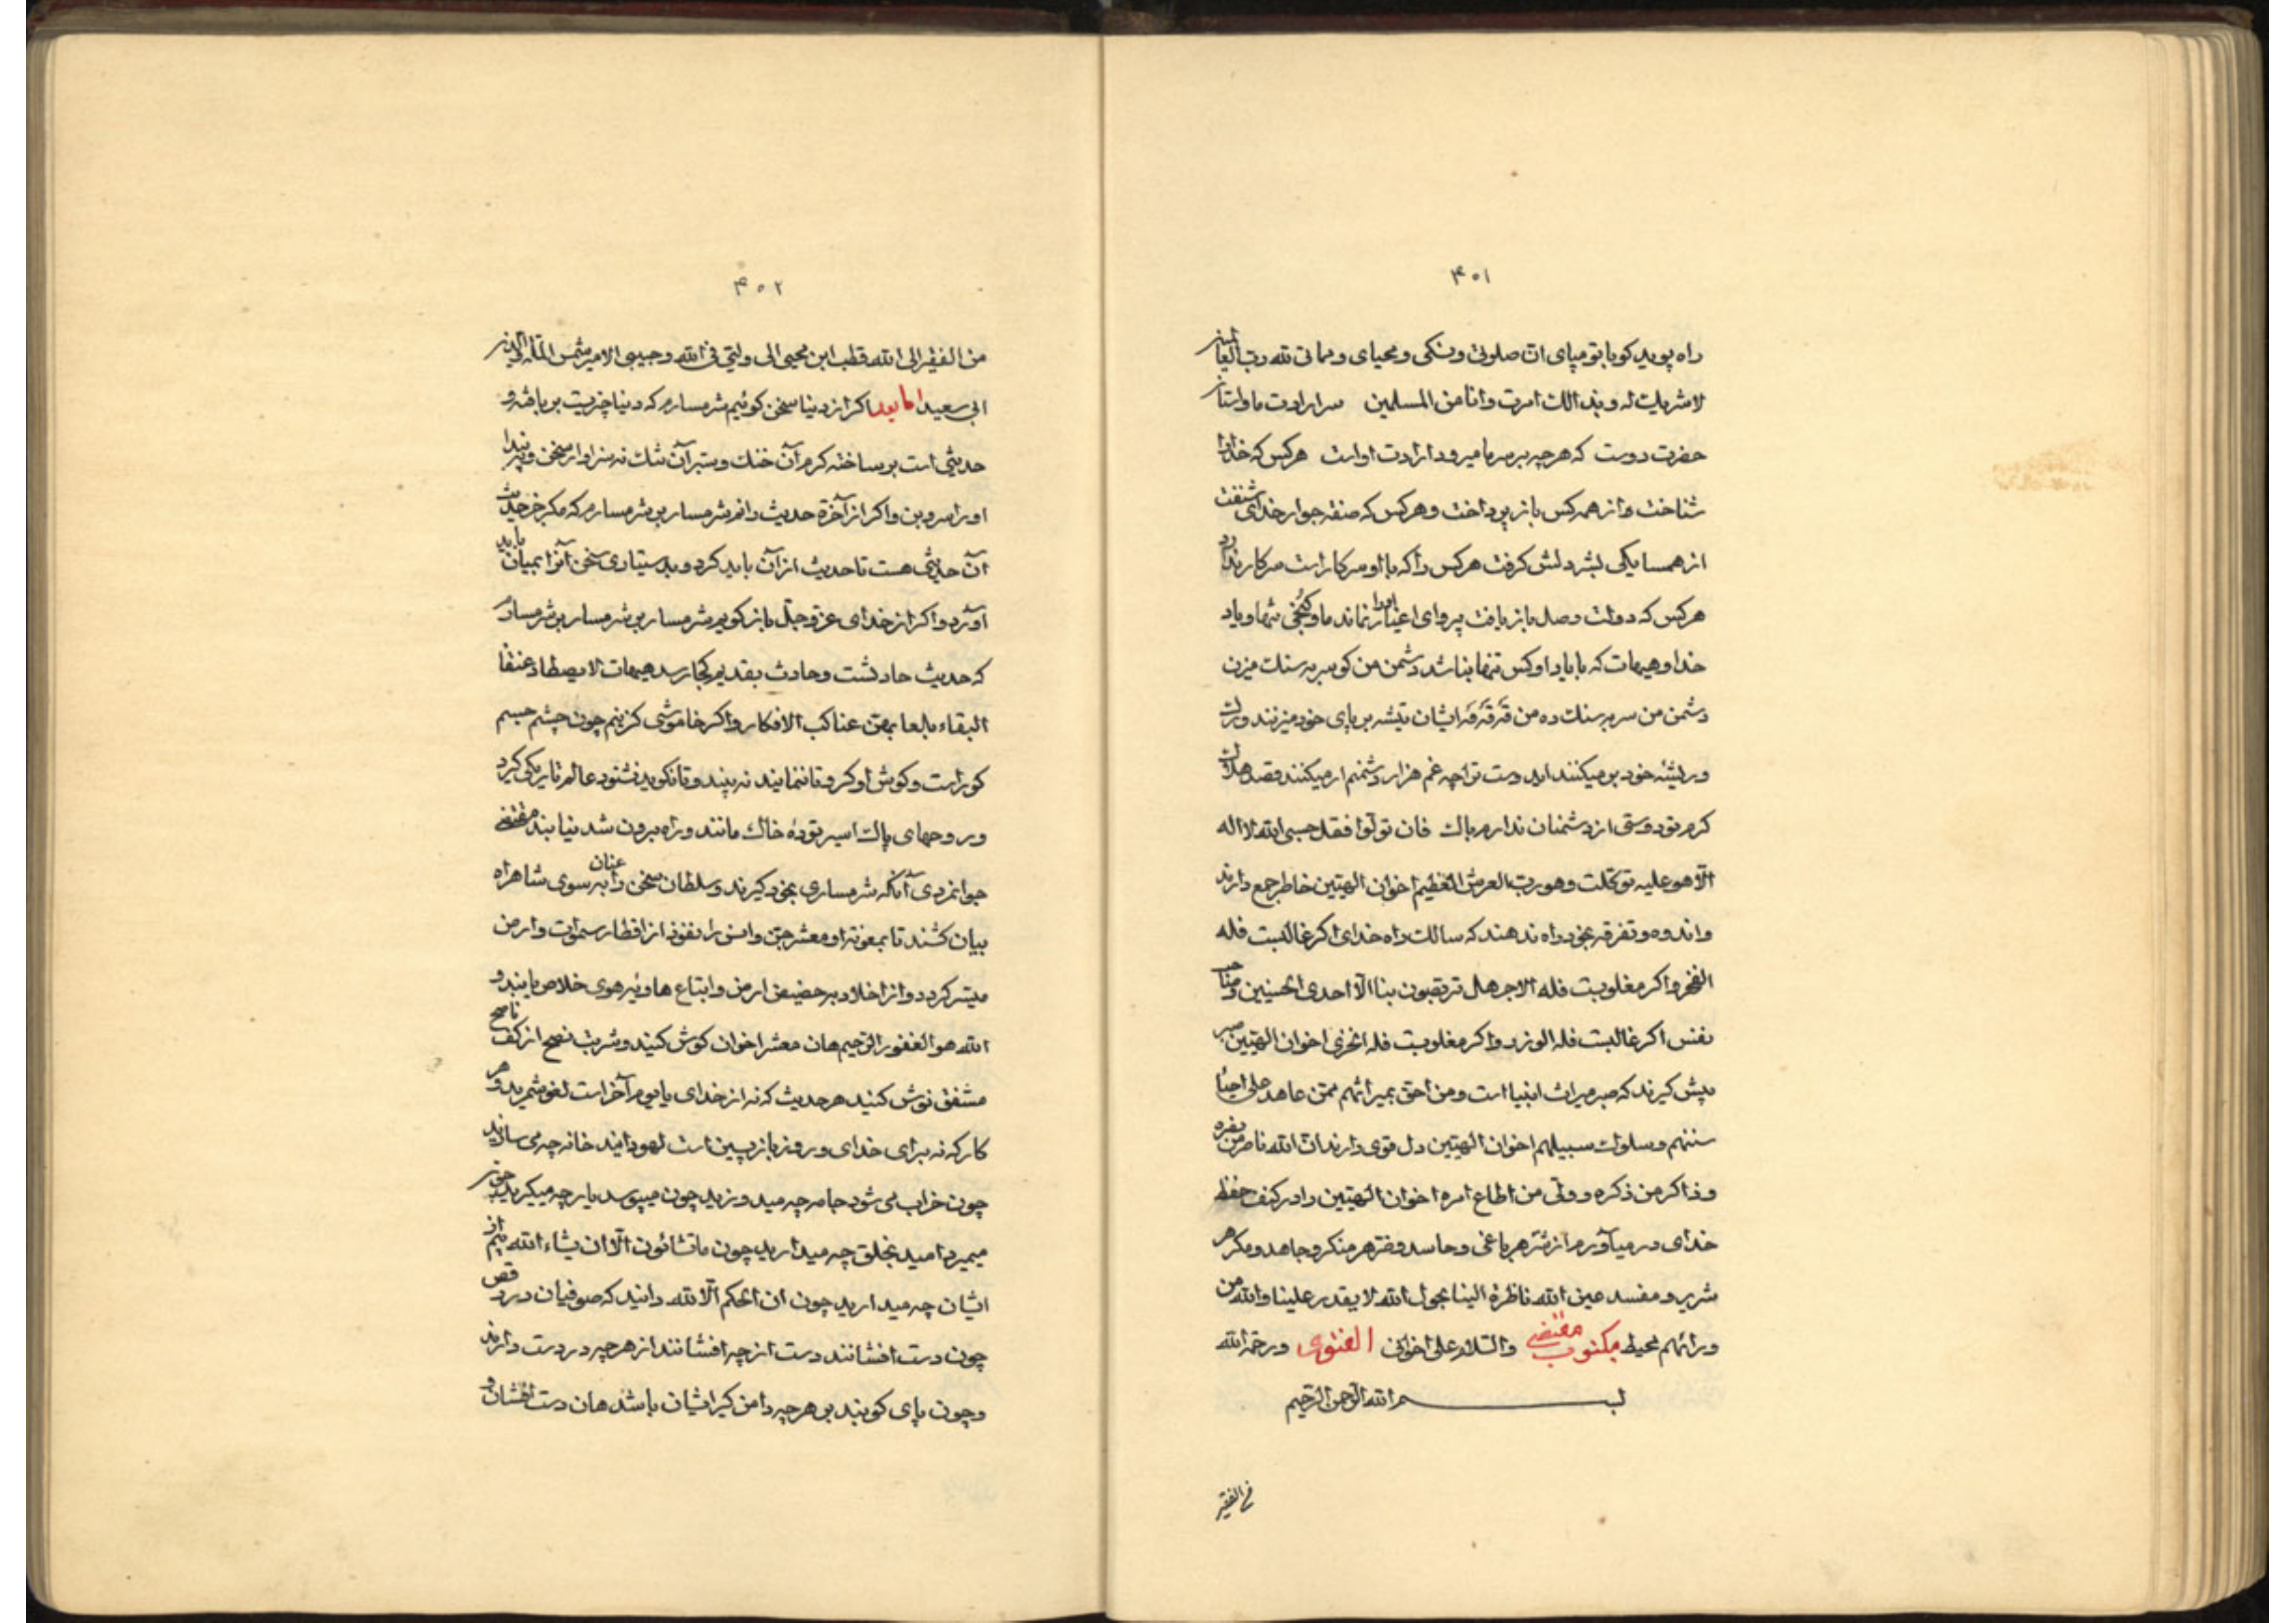 ۴۰۱
راه پوید کو با تو میپای ان صلوتی ونسکی ومحیای ومماتی لله رب العالمین
لا شریک له وبذالک امرت وانا من المسلمین سر ارادت ما واستان
حضرت دوست که هرچه بر سر ما میرود ارادت اوست هر کس که خدا را
شناخت واز همه کس باز پرداخت وهر کس که صفه جوار خدای
از همسایکی بشر دلش کرفت هر کس را که با او سر کار است سر کار ندارد
هر کس که دولت وصل باز یافت پروای اغیار نماند ما وکنجی شما ویاد
خدا وهیهات که با یاد او کس تنها باشد دشمن من کو سر بر سنک میزن
دشمن من سر بر سنک ده من ایشان تیشه بر پای خود میزنند
در بیشه خود بر میکنند اید وست ترا چه غم هزار دشمنم ار میکنند قصد هلاک
کرم تو دوستی از دشمنان ندارم باک فان تولوا فقل حسبی الله لا اله
الا هو علیه توکلت وهو رب العرش العظیم اخوان الهیین خاطر جمع دارند
واندوه وتفرقه بخود راه ندهند که سالک راه خدای اکر غالبست فله
الفخر واکر مغلوبست فله الاجر هل تربصون بنا الا احدی الحسنیین
نفس اکر غالبست فله الوزر واکر مغلوبست فله الخزی اخوان الهیین صبر
پیش کیرند که صبر میراث انبیا است ومن احق بمیراثهم ممن عاهد علی احیاء
سننهم وسلوک سبیلهم اخوان الهیین دل قوی دارند ان الله ناصر من نصره
وذاکر من ذکره وولی من اطاع امره اخوان الهیین را در کنف حفظ
خدای در میآورم از شر هر باغی وحاسد وضر هر منکر وجاحد ومکر هر
شریر ومفسد عین الله ناظرة الینا بحول الله لا یقدر علینا والله من
ورائهم محیط مکتوب مقتضی والسلام علی اخوانی ورحمة الله
بسم الله الرحمن الرحیم
من الفقیر
۴۰۲
من الفقیر الی الله قطب ابن محیی الی ولیی فی الله وحبیبی الامیر شمس الملة والدین
ابی سعید اما بعد اکر از دنیا سخن کوئیم شرمسارم که دنیا چیزیست بر بافته و
حدیثی است بر ساخته کرم آن خنک وستبر آن تنک نه سزاوار سخن
او را سر وبن واکر از آخرة حدیث دانم شرمسار بن شرمسارم که مکر جز حدیث
آن حدیثی هست تا حدیث از آن باید کرد وبدستیاری سخن آنرا بمیان باید
آورد واکر از خدای عز وجل باز کویم شرمسار بن شرمسار بن شرمسارم
که حدیث حادثست وحادث بقدیم کجا رسد هیهات لا یصطاد عنقا
البقاء بلعاب عناکب الافکار واکر خاموشی کزینم چون چشم جسم
کور است وکوش او کر وتا ننمایند نه بیند وتا نکوید نشنود عالم تاریکی کیرد
وروحهای پاک اسیر توده خاک مانند وراه برون شد نیابند مقتضی
جوانمردی آنکه شرمساری بخود کیرند وعنان سلطان سخن را به سوی شاهراه
بیان کشند تا بمعونة او معشر جن وانس را نفوذ از اقطار سموات وارض
میسر کردد واز اخلاد بر حضیض ارض واتباع هاویه هوی خلاص یابند و
الله هو الغفور الرحیم هان معشر اخوان کوش کنید وشربت نصح از کف ناصح
مشفق نوش کنید هر حدیث که نه از خدای یا یوم آخر است لغو شمرید وهر
کار که نه برای خدای وروز باز پسین است لهو دانید خانه چه می سازید
چون خراب می شود جامه چه میدوزید چون میپوسد یار چه میکیرید چون
میمیرد امید بخلق چه میدارید چون ما تشاؤن الا ان یشاء الله بیم از
ایشان چه میدارید چون ان الحکم الا لله دانید که صوفیان در رقص
چون دست افشانند دست از چه افشانند از هرچه در دست دارند
وچون پای کوبند بر هرچه دامن کیر ایشان باشد هان دست افشان و